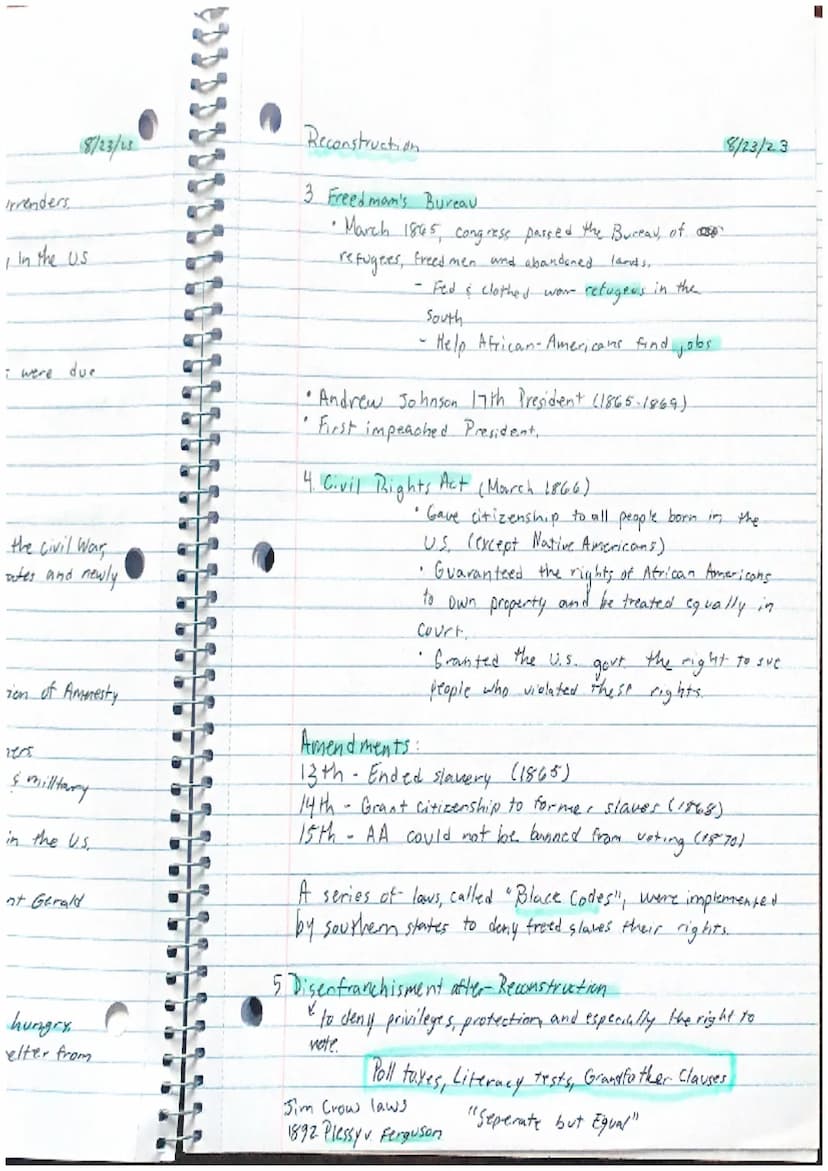 8/23/23
urrenders
In the US
were due
the civil War,
ates and newly
ion of Amnesty
ners
& millitary
in the U.S.
nt Gerald
hungry
elter from
Reconstruction 8/23/23
3 Freedmam's Bureau
• March 1865, congress passed the Bureau of
refugees, freedmen and abandoned lands.
- Fed & clothed war refugees in the
South
- Help African-Americans find jobs
• Andrew Johnson 17th President (1865-1869)
• First impeached President.
4. Civil Rights Act (March 1866)
• Gave citizenship to all people born in the
U.S. (except Native Americans)
• Guaranteed the rights of African Americans
to own property and be treated equally in
court.
• Granted the U.S. govt the right to sue
people who violated these rights.
Amendments:
13th - Ended slavery (1865)
14th - Grant citizenship to former slaves (1868)
15th - AA could not be banned from voting (1870)
A series of laws, called "Black Codes", were implemented
by southern states to deny freed slaves their rights.
5 Disenfranchisment after Reconstruction
to deny privileges, protection, and especially the right to
vote.
Poll taxes, Literacy tests, Grandfather Clauses
Jim Crow laws
1892 Plessy v. Ferguson "Seperate but Equal"